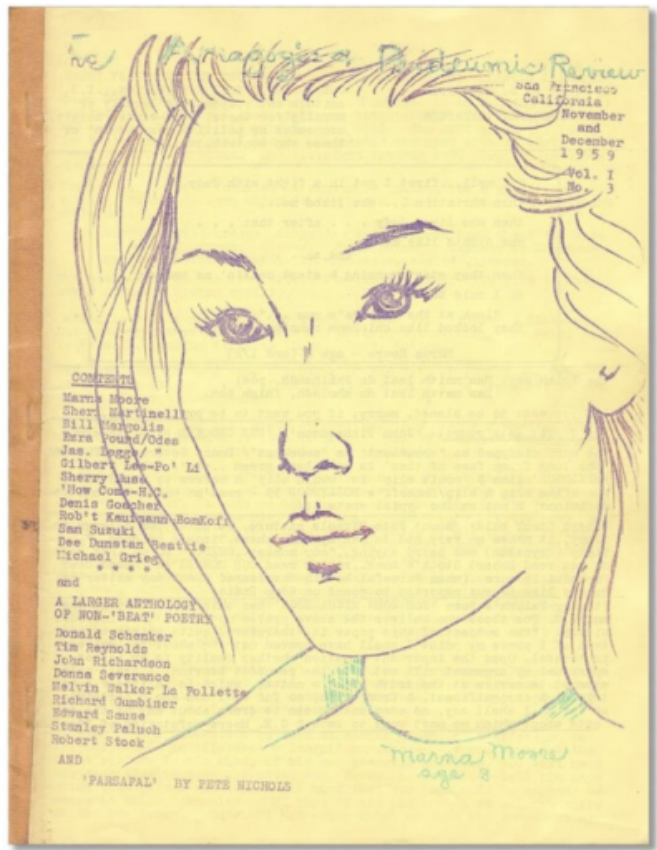 The Anagogic & Paideumic Review
San Francisco
California
November
and
December
1959
Vol. I
No. 3
CONTENTS
Marna Moore
Sheri Martinelli
Bill Margolis
Ezra Pound/Odes
Jas. Boggs/ "
Gilbert Lee-Po' Li
Sherry Juse
'How Come-H.C.
Denis Goacher
Rob't Kaufmann-BomKoff
San Suzuki
Dee Dunstan Beattie
Michael Grieg
* * * *
and
A LARGER ANTHOLOGY
OF NON-'BEAT' POETRY
Donald Schenker
Tim Reynolds
John Richardson
Donna Severance
Melvin Walker La Follette
Richard Gumbiner
Edward Sause
Stanley Paluch
Robert Stock
AND
'PARSAFAL' BY PETE NICHOLS
Marna Moore
age 8